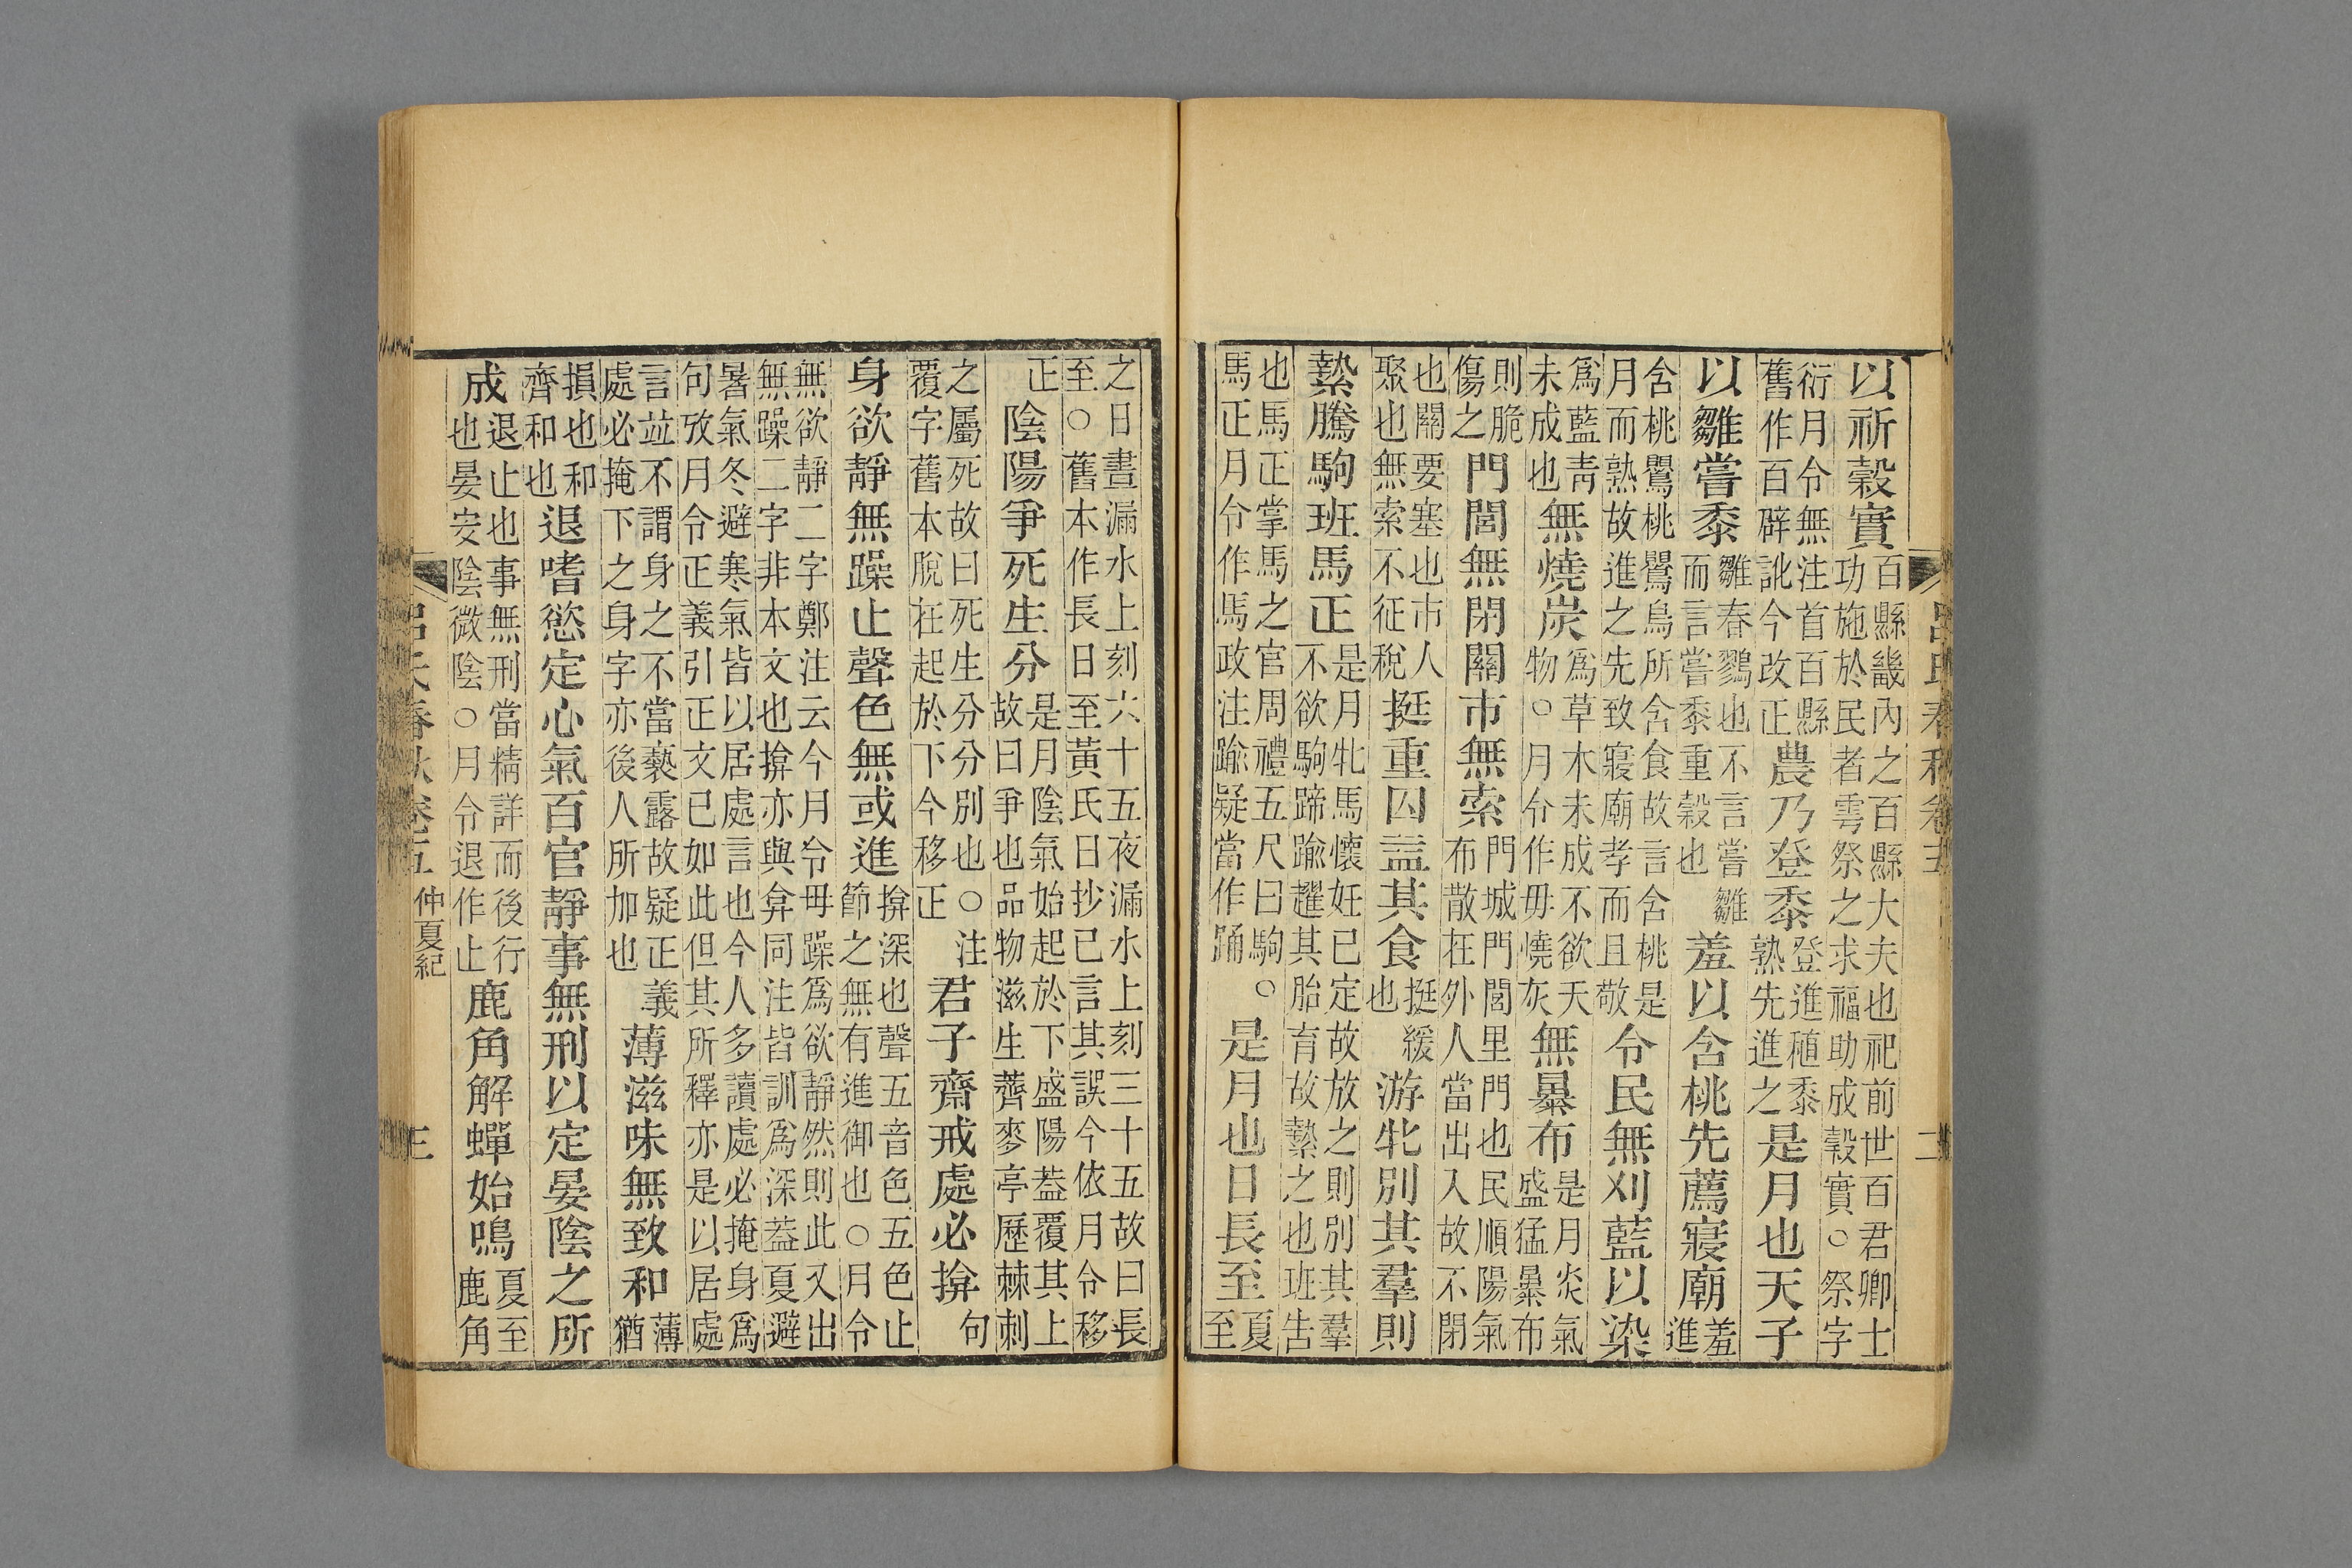 以祈穀實百縣畿內之百縣大夫也祀前世百君卿士功施於民者雩祭之求福助成穀實○祭字
衍月令無注首百縣舊作百辟訛今改正農乃登黍登進稙黍熟先進之是月也天子
以雛嘗黍雛春鷚也不言嘗雛而言嘗黍重穀也羞以含桃先薦寢廟羞進
含桃鸎桃鸎鳥所含食故言含桃是月而熟故進之先致寢廟孝而且敬令民無刈藍以染
爲藍靑未成也無燒炭爲草木未成不欲夭物○月令作毋燒灰無暴布是月炎氣盛猛暴布
則脆傷之門閭無閉關市無索門城門閭里門也民順陽氣布散在外人當出入故不閉
也關要塞也市人聚也無索不征稅挺重囚益其食挺緩也游牝別其羣則
縶騰駒班馬正是月牝馬懷妊已定故放之則別其羣不欲駒蹄踰趯其胎育故縶之也班告
也馬正掌馬之官周禮五尺曰駒○馬正月令作馬政注踰疑當作踊是月也日長至夏至
之日晝漏水上刻六十五夜漏水上刻三十五故曰長至○舊本作長日至黃氏日抄已言其誤今依月令移
正陰陽爭死生分是月陰氣始起於下盛陽葢覆其上故曰爭也品物滋生薺麥亭歷棘刺
之屬死故曰死生分分別也○注覆字舊本脫在起於下今移正君子齋戒處必揜句
身欲靜無躁止聲色無或進揜深也聲五音色五色止節之無有進御也○月令
無欲靜二字鄭注云今月令毋躁爲欲靜然則此又出無躁二字非本文也揜亦與弇同注皆訓爲深葢夏避
暑氣冬避寒氣皆以居處言也今人多讀處必掩身爲句攷月令正義引正文已如此但其所釋亦是以居處
言竝不謂身之不當褻露故疑正義處必掩下之身字亦後人所加也薄滋味無致和薄猶
損也和齊和也退嗜慾定心氣百官靜事無刑以定晏陰之所
成退止也事無刑當精詳而後行也晏安陰微陰○月令退作止鹿角解蟬始鳴夏至鹿角
呂氏春秋卷五 仲夏紀 三